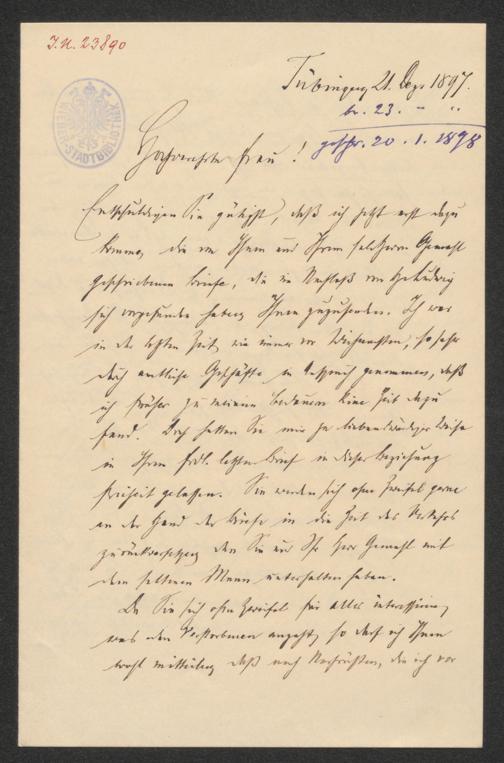 I.N. 23890
Tübingen 21. Dez. 1897.
br. 23. " "
geschr. 20. 1. 1898
WIENER STADTBIBLIOTHEK
Hochverehrte Frau!
Entschuldigen Sie gütigst, daß ich jetzt erst dazu
komme, die von Ihnen und Ihrem Herrn Gemahl
geschriebenen Briefe, die im Nachlaß von
sich vorgefunden haben, Ihnen zuzusenden. Ich war
in der letzten Zeit, wie immer vor Weihnachten, so sehr
durch amtliche Geschäfte in Anspruch genommen, daß
ich früher zu meinem Bedauern keine Zeit dazu
fand. Doch hatten Sie mir ja liebenswürdiger Weise
in Ihrem frdl. letzten Brief in dieser Beziehung
Freiheit gelassen. Sie werden sich ohne Zweifel gerne
an der Hand der Briefe in die Zeit des Verkehrs
zurückversetzen, den Sie und Ihr Herr Gemahl mit
dem seltenen Mann unterhalten haben.
Da Sie sich ohne Zweifel für alles interessieren,
was den Verstorbenen angeht, so darf ich Ihnen
wohl mitteilen, daß nach Nachrichten, die ich vor